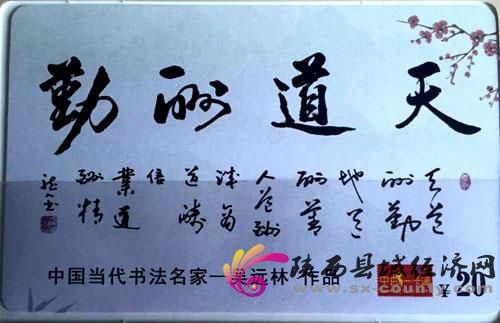 天道酬勤
天道
酬勤
地道
酬善
人道酬
诚商
道酬
信
業道
酬精
中国当代书法名家—吴远林 作品
¥20
陕西县域经济网
www.sx-county.com